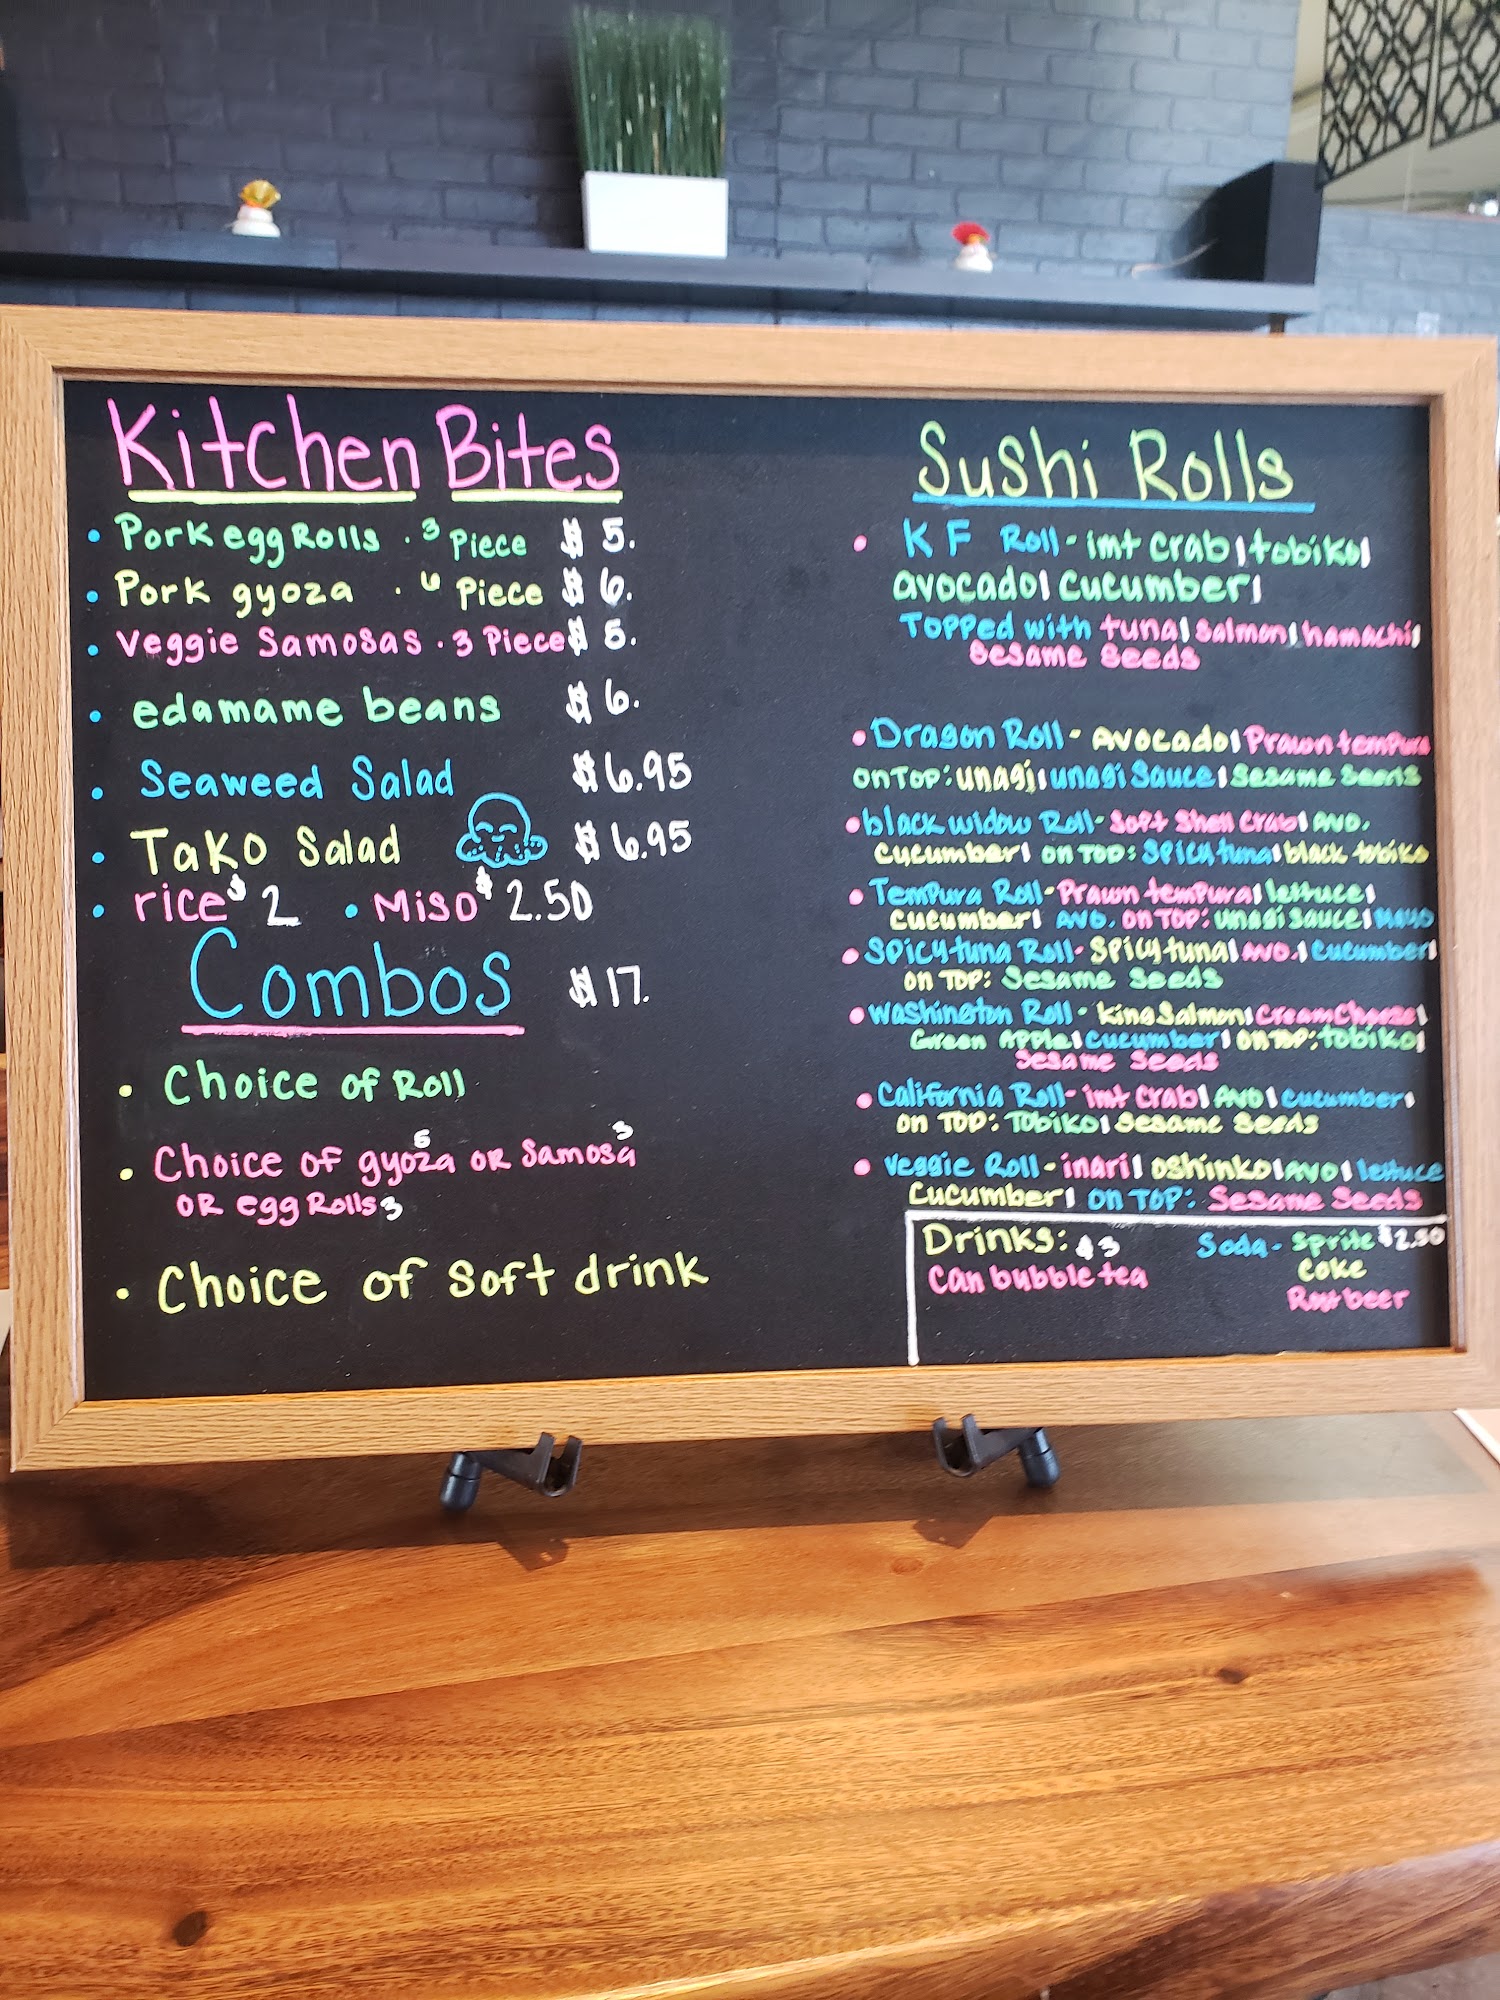 Kitchen Bites
• Pork egg Rolls · 3 Piece $ 5.
• Pork gyoza · 6 Piece $ 6.
• Veggie Samosas · 3 Piece $ 5.
• edamame beans $ 6.
• Seaweed Salad $ 6.95
• Tako Salad $ 6.95
• rice $ 2 • Miso $ 2.50
Combos $ 17.
• Choice of Roll
• Choice of gyoza 5 or Samosa 3
OR egg Rolls 3
• Choice of Soft drink
Sushi Rolls
• KF Roll - imt crab | tobiko |
Avocado | Cucumber |
Topped with tuna | Salmon | hamachi |
Sesame Seeds
• Dragon Roll - Avocado | Prawn tempura
on Top: unagi | unagi Sauce | Sesame Seeds
• black widow Roll - Soft Shell Crab | AVO.
Cucumber | on TOP: Spicy tuna | black tobiko
• Tempura Roll - Prawn tempura | lettuce |
Cucumber | AVO. on TOP: unagi sauce | Mayo
• Spicy tuna Roll - Spicy tuna | AVO. | Cucumber |
on TOP: Sesame Seeds
• Washington Roll - King Salmon | Cream Cheese |
Green Apple | Cucumber | on TOP: tobiko |
Sesame Seeds
• California Roll - imt crab | AVO | cucumber |
on TOP: Tobiko | Sesame Seeds
• Veggie Roll - inari | oshinko | AVO | lettuce
Cucumber | on TOP: Sesame Seeds
Drinks: $3 Soda - Sprite $2.50
Can bubble tea Coke
Root beer